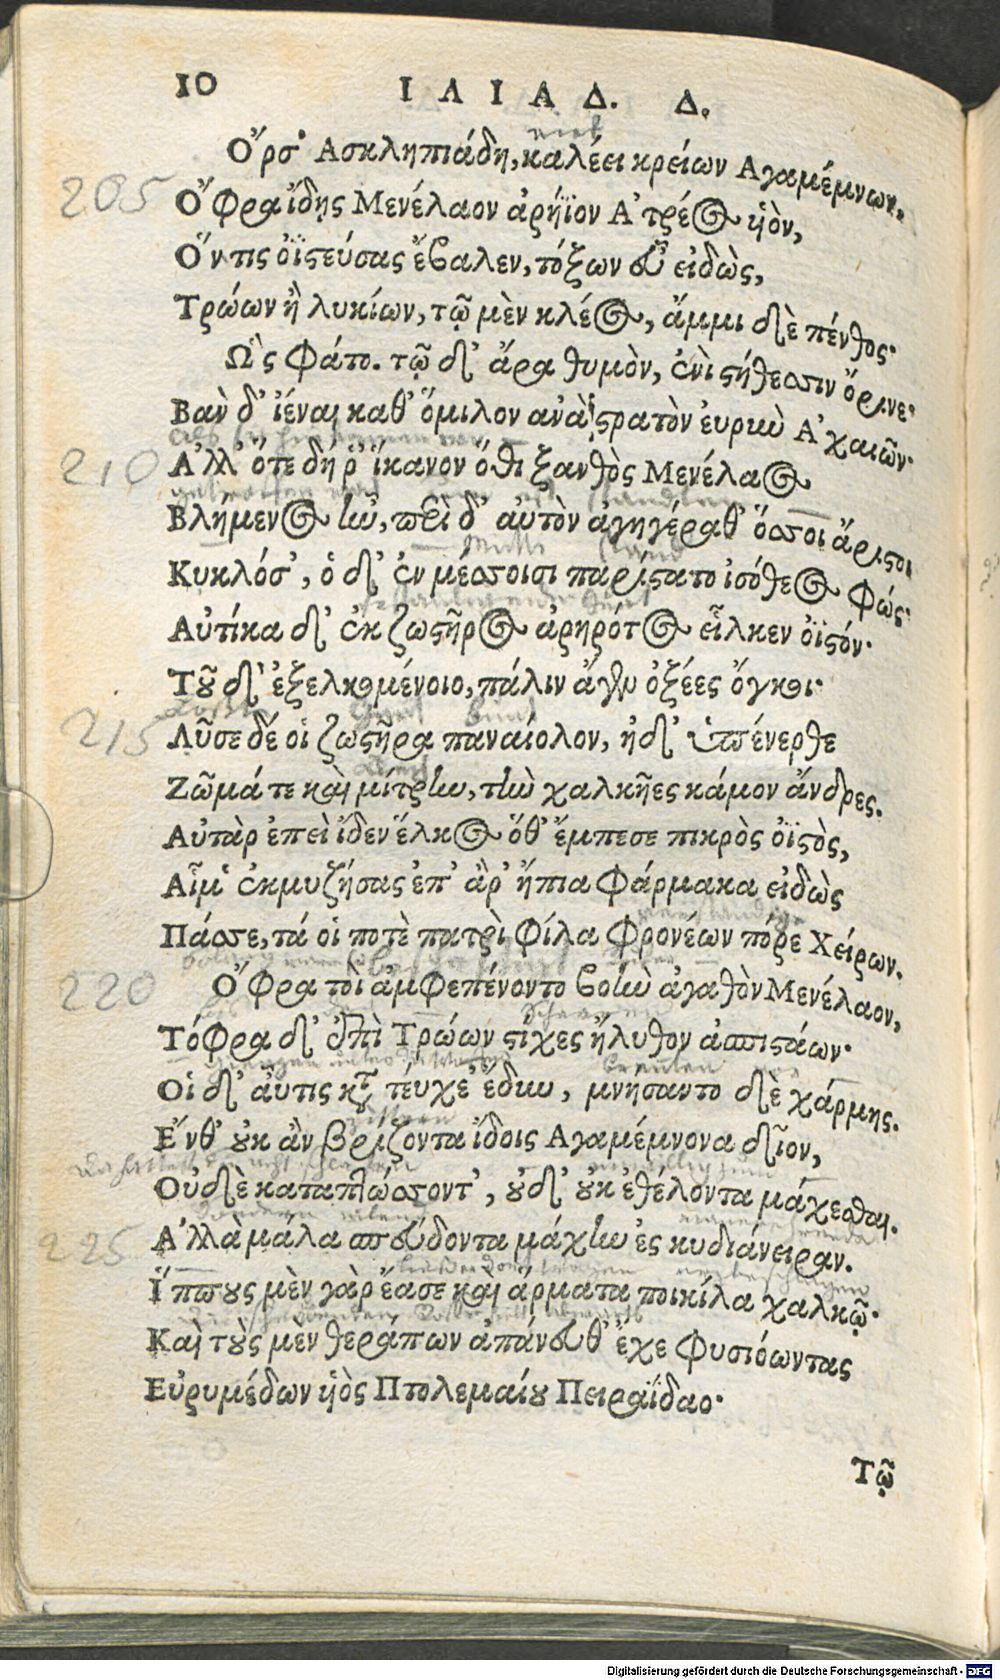 10 ΙΛΙΑΔ. Δ.
Ὄρσ' Ασκληπιάδη, καλέει κρείων Αγαμέμνων,
205 Ὄφρα ἴδῃς Μενέλαον ἀρήϊον Ἀτρέος ὑὸν,
Ὅν τις ὀϊστεύσας ἔβαλεν, τόξων εὖ εἰδὼς,
Τρώων ἢ λυκίων, τῷ μὲν κλέος, ἄμμι δὲ πένθος·
Ὣς φάτο. τῷ δ' ἄρα θυμὸν, ἐνὶ στήθεσσιν ὄρινε·
Βὰν δ' ἰέναι καθ' ὅμιλον ἀνὰ στρατὸν ἐυρὺν Ἀχαιῶν·
210 Ἀλλ' ὅτε δή ῥ' ἵκανον ὅθι ξανθὸς Μενέλαος
Βλήμενος ἦν, περὶ δ' αὐτὸν ἀγηγέραθ' ὅσσοι ἄριστοι
Κυκλόσ', ὁ δ' ἐν μέσσοισι παρίστατο ἰσόθεος φώς·
Αὐτίκα δ' ἐκ ζωστῆρος ἀρηρότος εἷλκεν ὀϊστόν·
Τοῦ δ' ἐξελκομένοιο, πάλιν ἄγεν ὀξέες ὄγκοι·
215 Λῦσε δέ οἱ ζωστῆρα παναίολον, ἠδ' ὑπένερθε
Ζῶμά τε καὶ μίτρην, τὴν χαλκῆες κάμον ἄνδρες.
Αὐτὰρ ἐπεὶ ἴδεν ἕλκος ὅθ' ἔμπεσε πικρὸς ὀϊστὸς,
Αἷμ' ἐκμυζήσας ἐπ' ἂρ' ἤπια φάρμακα εἰδὼς
Πάσσε, τά οἱ ποτὲ πατρὶ φίλα φρονέων πόρε Χείρων.
220 Ὄφρα τοὶ ἀμφεπένοντο βοὴν ἀγαθὸν Μενέλαον,
Τόφρα δ' ἐπὶ Τρώων στίχες ἤλυθον ἀσπιστάων·
Οἱ δ' ἀύτις κατὰ τεύχε' ἔδυν, μνήσαντο δὲ χάρμης.
Ἔνθ' οὐκ ἂν βρίζοντα ἴδοις Αγαμέμνονα δῖον,
Οὐδὲ καταπτώσσοντ', οὐδ' οὐκ ἐθέλοντα μάχεσθαι.
225 Ἀλλὰ μάλα σπεύδοντα μάχην ἐς κυδιάνειραν.
Ἵππους μὲν γὰρ ἔασε καὶ ἅρματα ποικίλα χαλκῷ·
Καὶ τοὺς μὲν θεράπων ἀπάνευθ' ἔχε φυσιόωντας
Εὐρυμέδων ὑὸς Πτολεμαίου Πειραΐδαο·
Τῷ
Digitalisierung gefördert durch die Deutsche Forschungsgemeinschaft - DFG